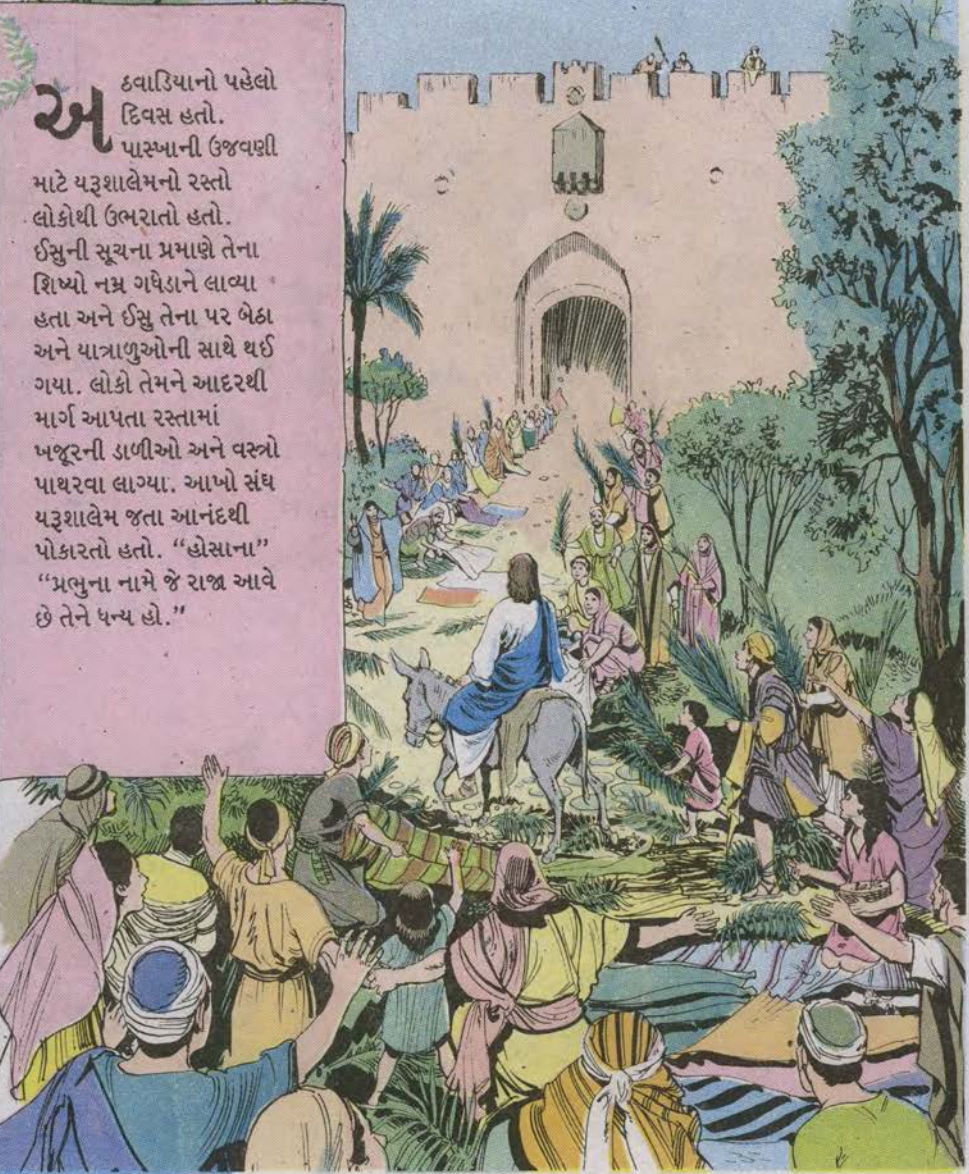 અઠવાડિયાનો પહેલો
દિવસ હતો.
પાસ્ખાની ઉજવણી
માટે યરૂશાલેમનો રસ્તો
લોકોથી ઉભરાતો હતો.
ઈસુની સૂચના પ્રમાણે તેના
શિષ્યો નમ્ર ગધેડાને લાવ્યા
હતા અને ઈસુ તેના પર બેઠા
અને યાત્રાળુઓની સાથે થઈ
ગયા. લોકો તેમને આદરથી
માર્ગ આપતા રસ્તામાં
ખજૂરની ડાળીઓ અને વસ્ત્રો
પાથરવા લાગ્યા. આખો સંઘ
યરૂશાલેમ જતા આનંદથી
પોકારતો હતો. “હોસાના”
“પ્રભુના નામે જે રાજા આવે
છે તેને ધન્ય હો.”